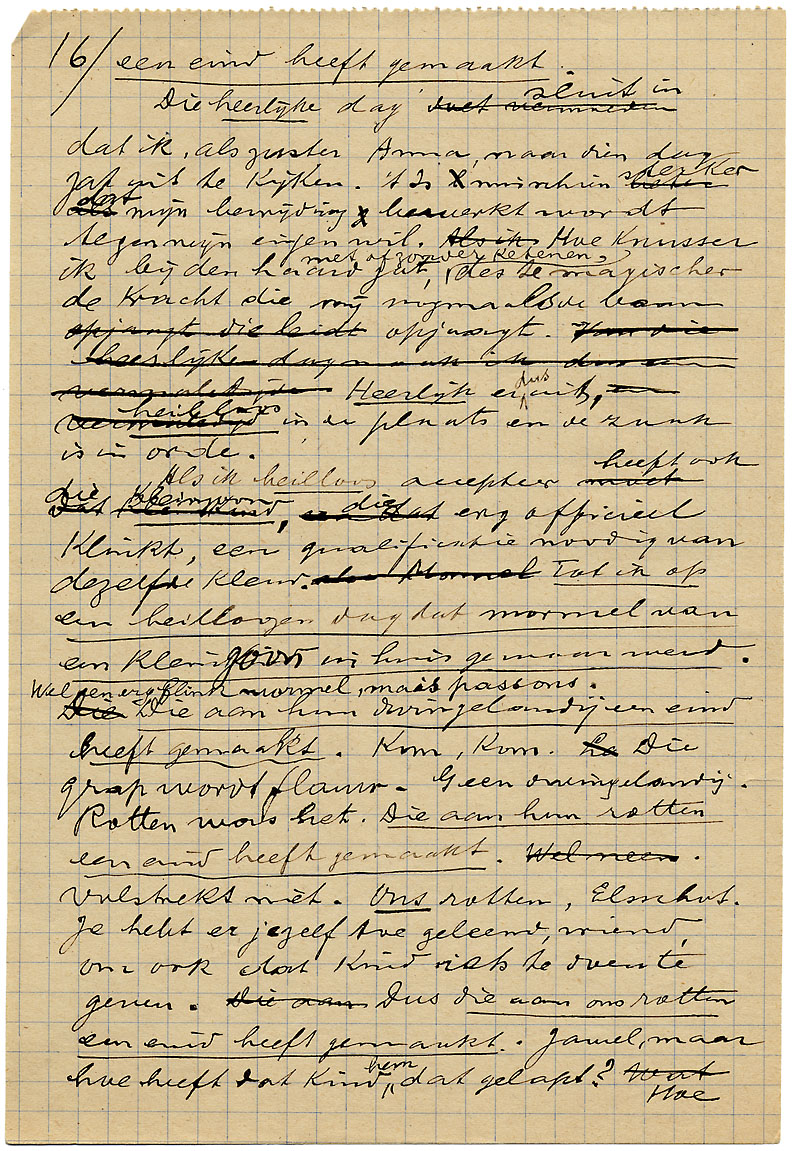 16/ een eind heeft gemaakt.
Die heerlijke dag doet vermoeden sluit in
dat ik, als zuster Anna, naar dien dag
zat uit te kijken. 't Is X minschien sterker
als dat mijn bevrijding X bewerkt wordt
tegen mijn eigen wil. Als ik Hoe knusser
met of zonder ketenen,
ik bij den haard zat, des te magischer
de kracht die mij nogmaals
opjaagt die leidt opjaagt. Van die
heerlijke dag maak ik dus een
Heerlijk er uit, dus
heilloos in de plaats en de zaak
is in orde.
Als ik heilloos accepteer moet heeft ook
die kleinzoon
Dat kleinkind, die dat erg officieel
klinkt, een qualificatie noodig van
dezelfde kleur. Mormel Tot ik op
een heilloozen dag dat mormel van
een kleinzoon in huis gewaar werd.
Wel een erg flink mormel, mais passons.
Die Die aan hun dwingelandij een eind
heeft gemaakt. Kom, kom. Die
grap wordt flauw. Geen dwingelandij.
Rotten was het. Die aan hun rotten
een eind heeft gemaakt. Wel neen.
Volstrekt niet. Ons rotten, Elsschot.
Je hebt er jezelf toe geleend, vriend,
om ook dat kind iets te
geven. Die aan Dus die aan ons rotten
een eind heeft gemaakt. Jawel, maar
hoe heeft dat kind hem dat gelapt? Wat
Hoe